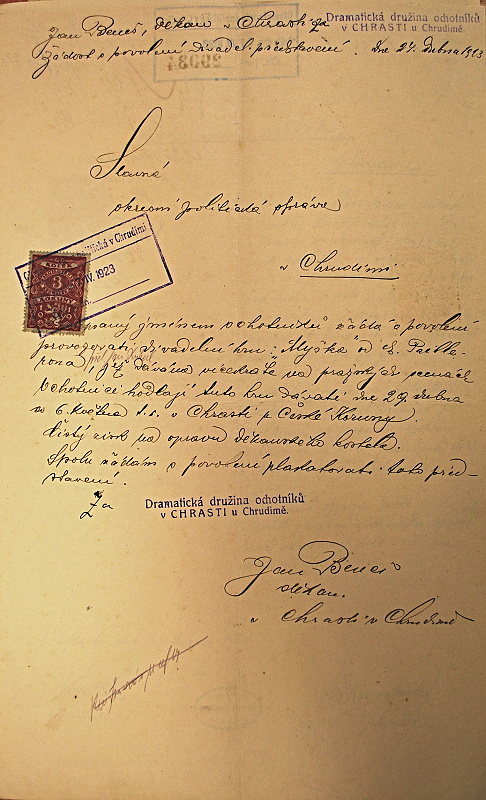 Jan Beneš, děkan v Chrasti za
Dramatická družina ochotníků
v CHRASTI u Chrudimě.
žádost o povolení divadel. představení. dne 24. dubna 1923
29034
Slavná
okresní politická správo
v Chrudimi
politická v Chrudimi
IV. 1923
KOLEK
3
KORUNY
1919
psaný jménem ochotníků žádá o povolení
provozovati divadelní hru: "Myška" od E. Paille-
rona, jež dávána vícekráte na pražských scenách
Ochotníci hodlají tuto hru dávati dne 29. dubna
a 6. května t. r. v Chrasti u České Koruny.
Čistý zisk na opravu děkanského kostela.
Spolu žádám o povolení plakátovati toto před-
stavení.
Za
Dramatická družina ochotníků
v CHRASTI u Chrudimě.
Jan Beneš
děkan.
v Chrasti u Chrudimě